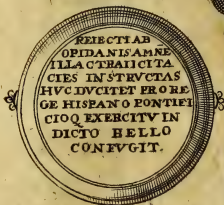 REIECTI AB
OPIDANIS AMNE
ILLAC TRAIICIT A
CIES INSTRVCTAS
HVC DVCIT ET PRO RE
GE HISPANO PONTIFI
CIOQ EXERCITV IN
DICTO BELLO
CONFVGIT.